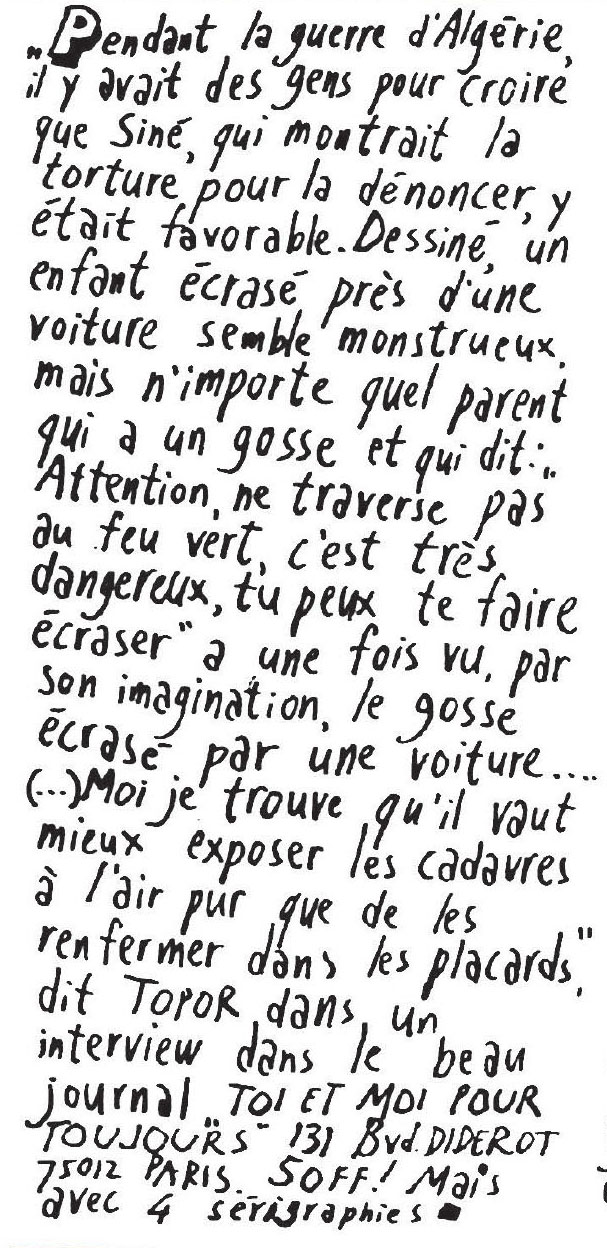 „Pendant la guerre d'Algérie,
il y avait des gens pour croire
que Siné, qui montrait la
torture pour la dénoncer, y
était favorable. Dessiné, un
enfant écrasé près d'une
voiture semble monstrueux.
mais n'importe quel parent
qui a un gosse et qui dit: „
Attention, ne traverse pas
au feu vert, c'est très
dangereux, tu peux te faire
écraser" a une fois vu, par
son imagination, le gosse
écrasé par une voiture....
(...) Moi je trouve qu'il vaut
mieux exposer les cadavres
à l'air pur que de les
renfermer dans les placards,"
dit TOPOR dans un
interview dans le beau
journal „TOI ET MOI POUR
TOUJOURS" 131 Bvd. DIDEROT
75012 PARIS. 50FF! Mais
avec 4 sérigraphies